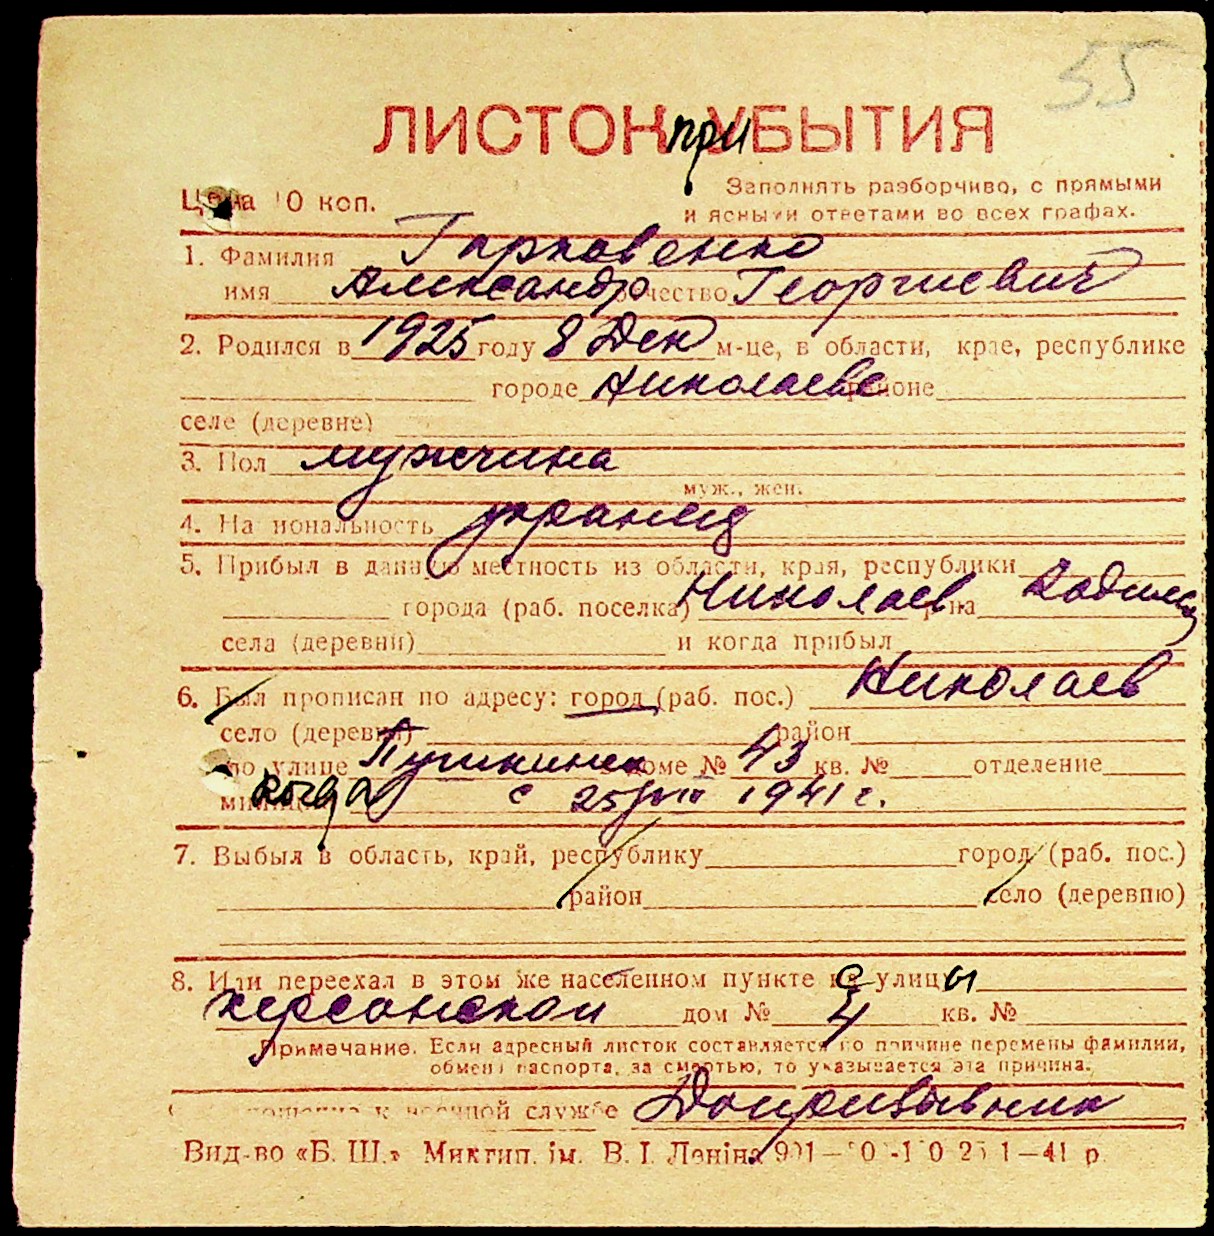 55
ЛИСТОК приУБЫТИЯ
Цена 10 коп.
Заполнять разборчиво, с прямыми
и ясными ответами во всех графах.
1. Фамилия Гарковенко
имя Александр отчество Георгиевич
2. Родился в 1925 году 8 Дек м-це, в области, крае, республике
городе Николаеве районе
селе (деревне)
3. Пол мужчина
муж., жен.
4. Национальность украинец
5. Прибыл в данную местность из области, края, республики
города (раб. поселка) Николаев р-на
села (деревни) и когда прибыл
6. Был прописан по адресу: город (раб. пос.) Николаев
село (деревня) район
по улице Пушкинск доме № 43 кв. № отделение
милиции когда с 25/VIII 1941 г.
7. Выбыл в область, край, республику город (раб. пос.)
район село (деревню)
8. Или переехал в этом же населенном пункте с улицы
Херсонской дом № 4 кв. №
Примечание. Если адресный листок составляется по причине перемены фамилии,
обмена паспорта, за смертью, то указывается эта причина.
к военной службе Допризывник
Вид-во «Б. Ш.» Миктип. ім. В. І. Леніна